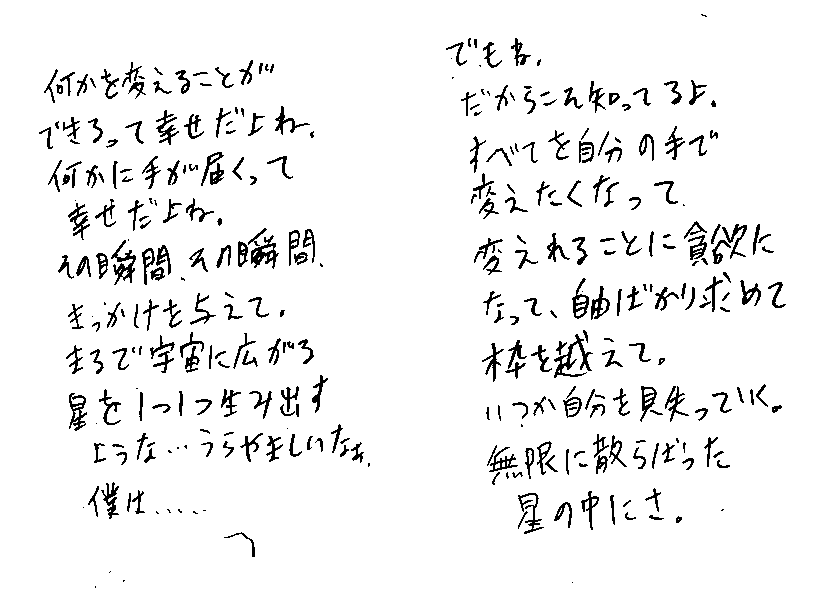 何かを変えることが
できるって幸せだよね。
何かに手が届くって
幸せだよね。
その瞬間、その瞬間、
きっかけを与えて。
まるで宇宙に広がる
星を1つ1つ生み出す
ような…うらやましいなぁ、
僕は……
でもね。
だからこそ知ってるよ。
すべてを自分の手で
変えたくなって
変えれることに貪欲に
なって、自由ばかり求めて
枠を越えて。
いつか自分を見失っていく。
無限に散らばった
星の中にさ。